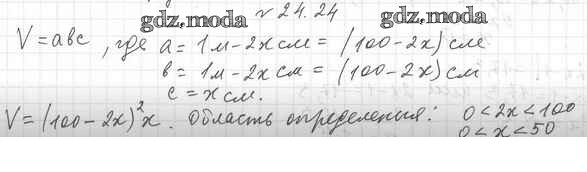 gdz.moda № 24.24 gdz.moda
V = abc, где a = 1м - 2x см = (100 - 2x) см
b = 1м - 2x см = (100 - 2x) см
c = x см.
V = (100 - 2x)²x. Область определения: 0 < 2x < 100
0 < x < 50